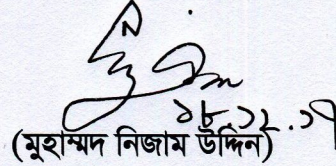 ১৮.১২.১৭
(মুহাম্মদ নিজাম উদ্দিন)